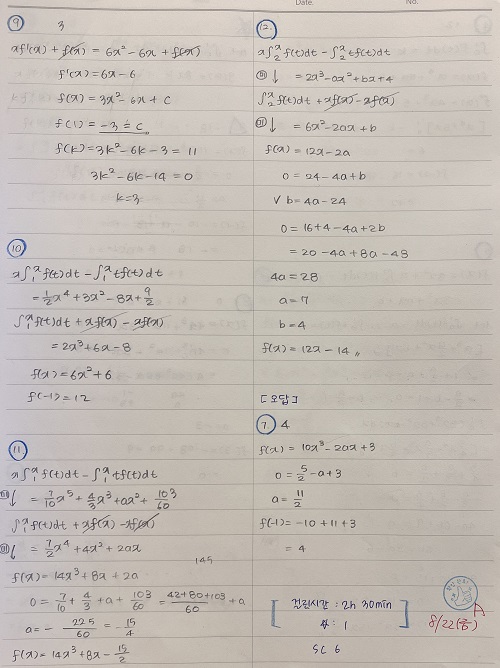 Date. No.
⑨ 3
xf'(x) + f(x) = 6x² - 6x + f(x)
f'(x) = 6x - 6
f(x) = 3x² - 6x + c
f(1) = -3 = c
f(k) = 3k² - 6k - 3 = 11
3k² - 6k - 14 = 0
k = 3
⑩
x∫₁ˣ f(t)dt - ∫₁ˣ tf(t)dt
= 1/2 x⁴ + 3x² - 8x + 9/2
∫₁ˣ f(t)dt + xf(x) - xf(x)
= 2x³ + 6x - 8
f(x) = 6x² + 6
f(-1) = 12
⑪
x∫₁ˣ f(t)dt - ∫₁ˣ tf(t)dt
미↓ = 7/10 x⁵ + 4/3 x³ + ax² + 103/60
∫₁ˣ f(t)dt + xf(x) - xf(x)
미↓ = 7/2 x⁴ + 4x² + 2ax
145
f(x) = 14x³ + 8x + 2a
0 = 7/10 + 4/3 + a + 103/60 = 42+80+103/60 + a
a = - 225/60 = - 15/4
f(x) = 14x³ + 8x - 15/2
⑫
x∫₂ˣ f(t)dt - ∫₂ˣ tf(t)dt
미↓ = 2x³ - ax² + bx + 4
∫₂ˣ f(t)dt + xf(x) - xf(x)
미↓ = 6x² - 2ax + b
f(x) = 12x - 2a
0 = 24 - 4a + b
√ b = 4a - 24
0 = 16 + 4 - 4a + 2b
= 20 - 4a + 8a - 48
4a = 28
a = 7
b = 4
f(x) = 12x - 14 〃
[오답]
⑦ 4
f(x) = 10x³ - 2ax + 3
0 = 5/2 - a + 3
a = 11/2
f(-1) = -10 + 11 + 3
= 4
[ 걸린시간 : 2h 30min
: 1 ]
SC 6
8/22
A